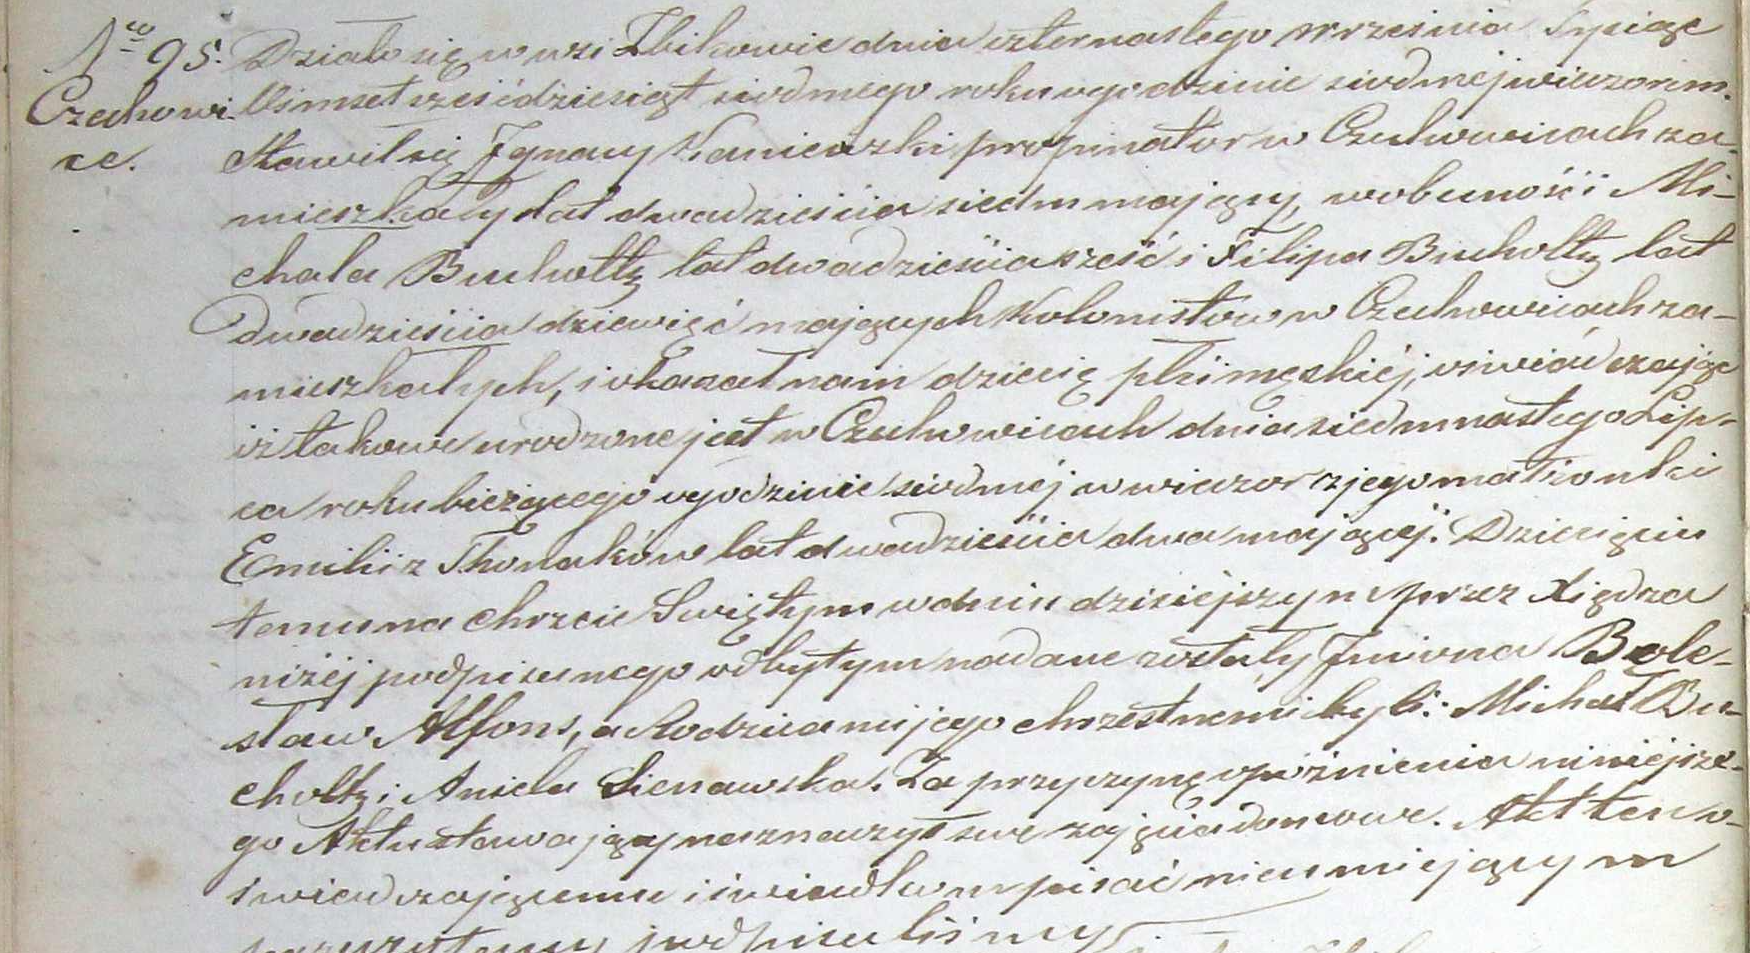 Nro 95.
Czechowi-
ce.
Działo się w wsi Zbikowie dnia czternastego września Tysiąc
Ośmset sześćdziesiąt siodmego roku o godzinie siodmej wieczorem.
Stawił się Ignacy Kaniewski propinator w Czechowicach za-
mieszkały lat dwadzieścia siedm mający, w obecności Mi-
chała Bucholtz lat dwadzieścia sześć i Filipa Bucholtz lat
dwadzieścia dziewięć mających Kolonistow w Czechowicach za-
mieszkałych, i okazał nam dziecię płci męskiéj, oświadczając
iż takowe urodzone jest w Czechowicach dnia siedmnastego Lip-
ca roku bieżącego o godzinie siodméj w wieczor z jego małżonki
Emilii z Thonaków lat dwadzieścia dwa mającéj. Dziecięciu
temu na chrzcie Swiętym w dniu dzisiéjszym przez Xiędza
niżéj podpisanego odbytym nadane zostały Imiona Bole-
sław Alfons, a Rodzicami jego chrzestnemi byli: Michał Bu-
choltz i Aniela Sienawska. Za przyczynę opóźnienia niniéjsze-
go Aktu stawający naznaczył swe zajęcia domowe. Akt ten o-
świadczającemu i świadkom pisać nieumiejącym
przeczytany podpisaliśmy